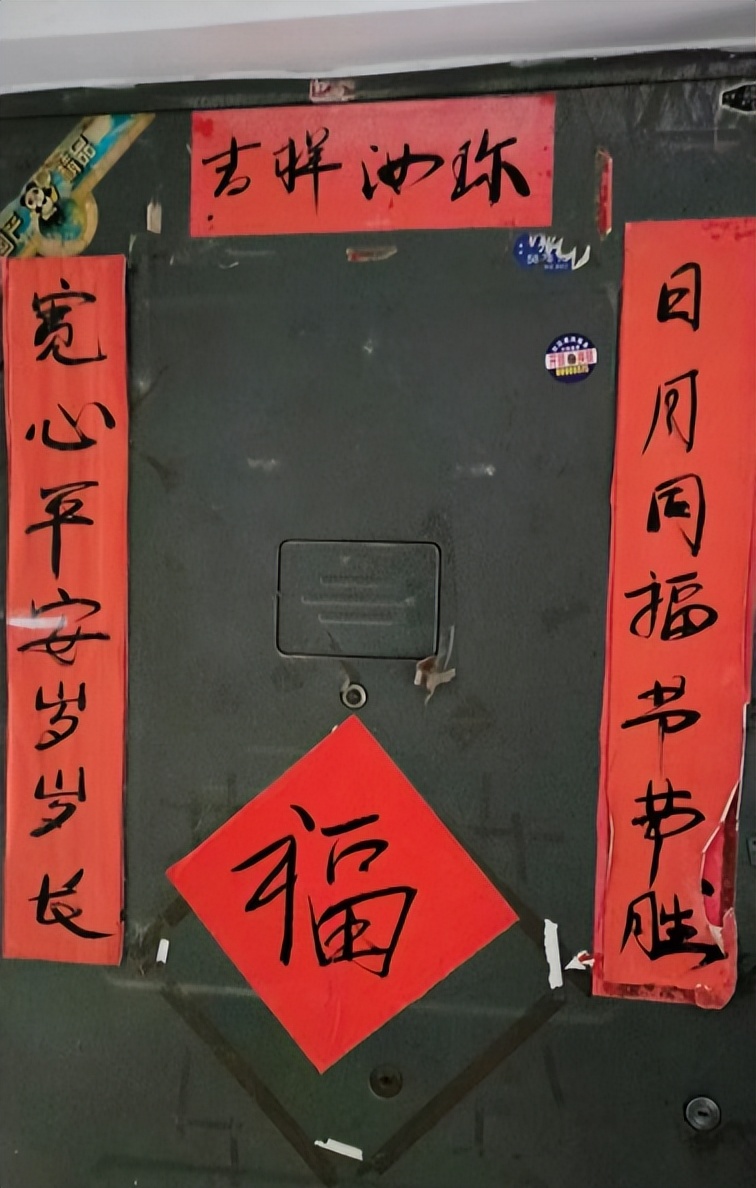 吉祥汝珎
日月同福节节胜
宽心平安岁岁长
福